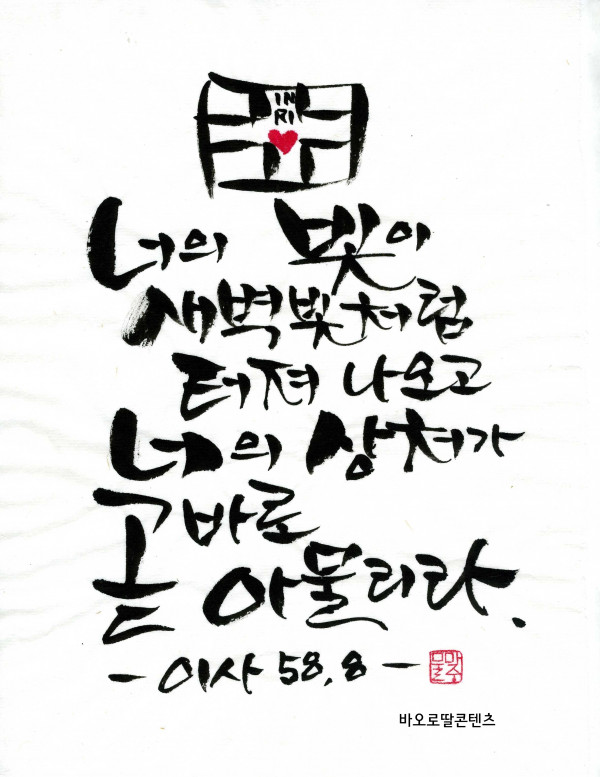 IN
RI
너의 빛이
새벽빛처럼
터져 나오고
너의 상처가
곧바로
아물리라.
- 이사 58, 8 -
바오로딸콘텐츠